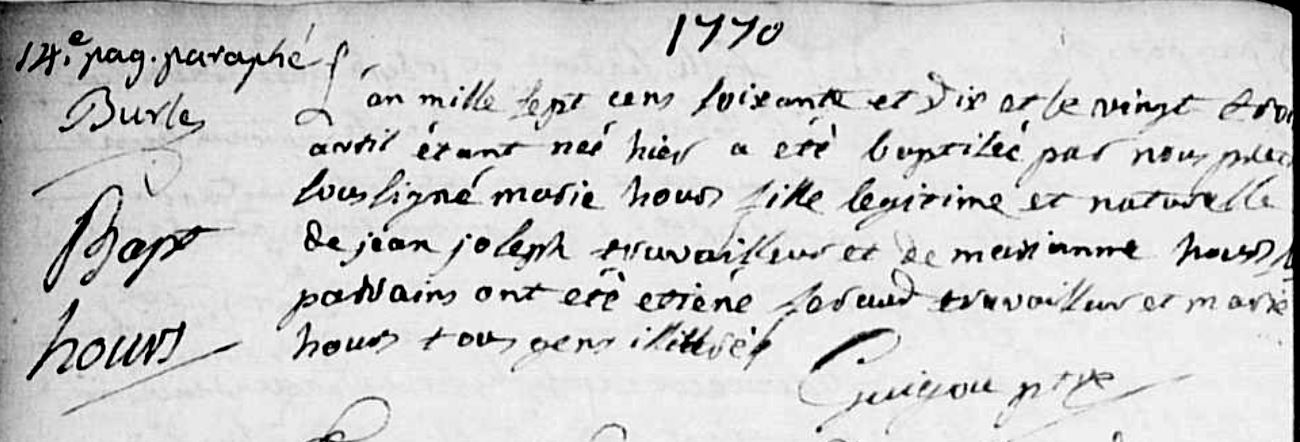 1770
14.e pag. paraphé
Burle
Bapt
hours
L'an mille sept cens soixante et dix et le vingt troi
avril étant neé hier a été baptiseé par nous pretr
soussigné marie hours fille legitime et naturelle
de jean joseph travailleur et de marianne hours
parrains ont été etiene travailleur et marie
hours tous gens illittrés
Guigou ptre